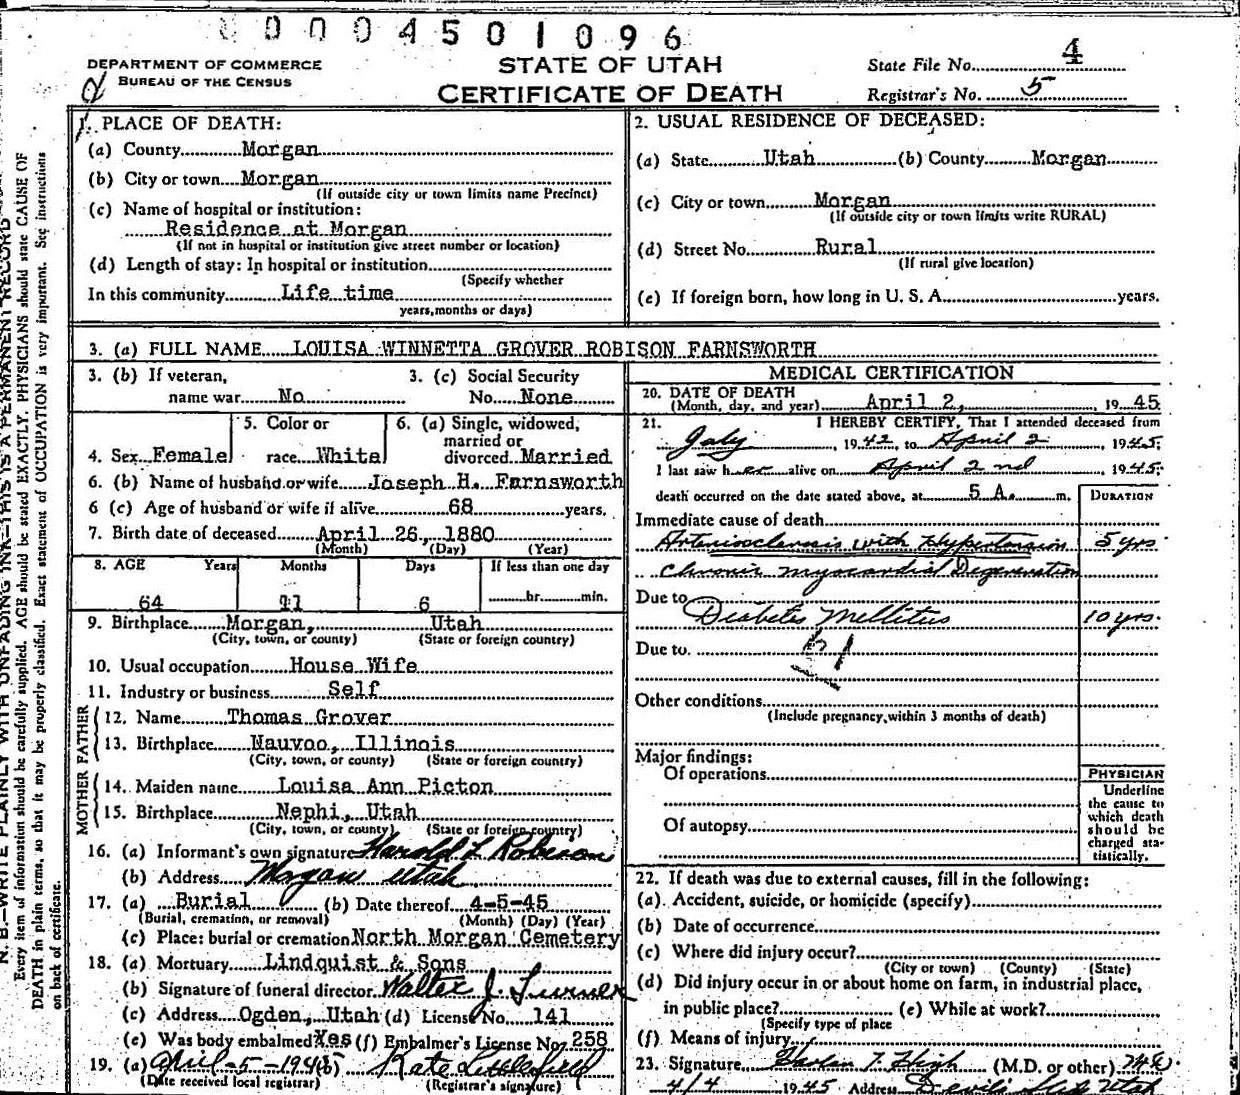 0004501096
DEPARTMENT OF COMMERCE
BUREAU OF THE CENSUS
STATE OF UTAH
CERTIFICATE OF DEATH
State File No. 4
Registrar's No. 5
1. PLACE OF DEATH:
(a) County Morgan
(b) City or town Morgan
(If outside city or town limits name Precinct)
(c) Name of hospital or institution:
Residence at Morgan
(If not in hospital or institution give street number or location)
(d) Length of stay: In hospital or institution
(Specify whether
In this community Life time
years, months or days)
2. USUAL RESIDENCE OF DECEASED:
(a) State Utah (b) County Morgan
(c) City or town Morgan
(If outside city or town limits write RURAL)
(d) Street No. Rural
(If rural give location)
(e) If foreign born, how long in U. S. A. years.
3. (a) FULL NAME LOUISA WINNETTA GROVER ROBISON FARNSWORTH
3. (b) If veteran, 3. (c) Social Security
name war No No. None
4. Sex Female
5. Color or
race White
6. (a) Single, widowed,
married or
divorced Married
6. (b) Name of husband or wife Joseph H. Farnsworth
6 (c) Age of husband or wife if alive 68 years.
7. Birth date of deceased April 26, 1880
(Month) (Day) (Year)
8. AGE Years Months Days If less than one day
64 11 6 hr. min.
9. Birthplace Morgan, Utah
(City, town, or county) (State or foreign country)
10. Usual occupation House Wife
11. Industry or business Self
FATHER
12. Name Thomas Grover
13. Birthplace Nauvoo, Illinois
(City, town, or county) (State or foreign country)
MOTHER
14. Maiden name Louisa Ann Picton
15. Birthplace Nephi, Utah
(City, town, or county) (State or foreign country)
16. (a) Informant's own signature Harold L Robison
(b) Address Morgan Utah
17. (a) Burial (b) Date thereof 4-5-45
(Burial, cremation, or removal) (Month) (Day) (Year)
(c) Place: burial or cremation North Morgan Cemetery
18. (a) Mortuary Lindquist & Sons
(b) Signature of funeral director Walter J. Turner
(c) Address Ogden, Utah (d) License No. 141
(e) Was body embalmed Yes (f) Embalmer's License No. 258
19. (a) April-5-1945 (b) Kate Littlefield
(Date received local registrar) (Registrar's signature)
MEDICAL CERTIFICATION
20. DATE OF DEATH
(Month, day, and year) April 2, 1945
21. I HEREBY CERTIFY, That I attended deceased from
July 1942, to April 2 1945.
I last saw her alive on April 2nd 1945.
death occurred on the date stated above, at 5 A. m.
DURATION
Immediate cause of death
Arteriosclerosis with Hypertension 5 yrs
Chronic Myocardial Degeneration
Due to
Diabetes Mellitus 10 yrs.
Due to
61
Other conditions
(Include pregnancy within 3 months of death)
Major findings:
Of operations
Of autopsy
PHYSICIAN
Underline
the cause to
which death
should be
charged sta-
tistically.
22. If death was due to external causes, fill in the following:
(a) Accident, suicide, or homicide (specify)
(b) Date of occurrence
(c) Where did injury occur?
(City or town) (County) (State)
(d) Did injury occur in or about home on farm, in industrial place,
in public place? (e) While at work?
(Specify type of place
(f) Means of injury
23. Signature (M.D. or other) M.D.
4/4 1945 Address Devils Slide Utah
N. B.—WRITE PLAINLY WITH UNFADING INK—THIS IS A PERMANENT RECORD
Every item of information should be carefully supplied. AGE should be stated EXACTLY. PHYSICIANS should state CAUSE OF
DEATH in plain terms, so that it may be properly classified. Exact statement of OCCUPATION is very important. See instructions
on back of certificate.